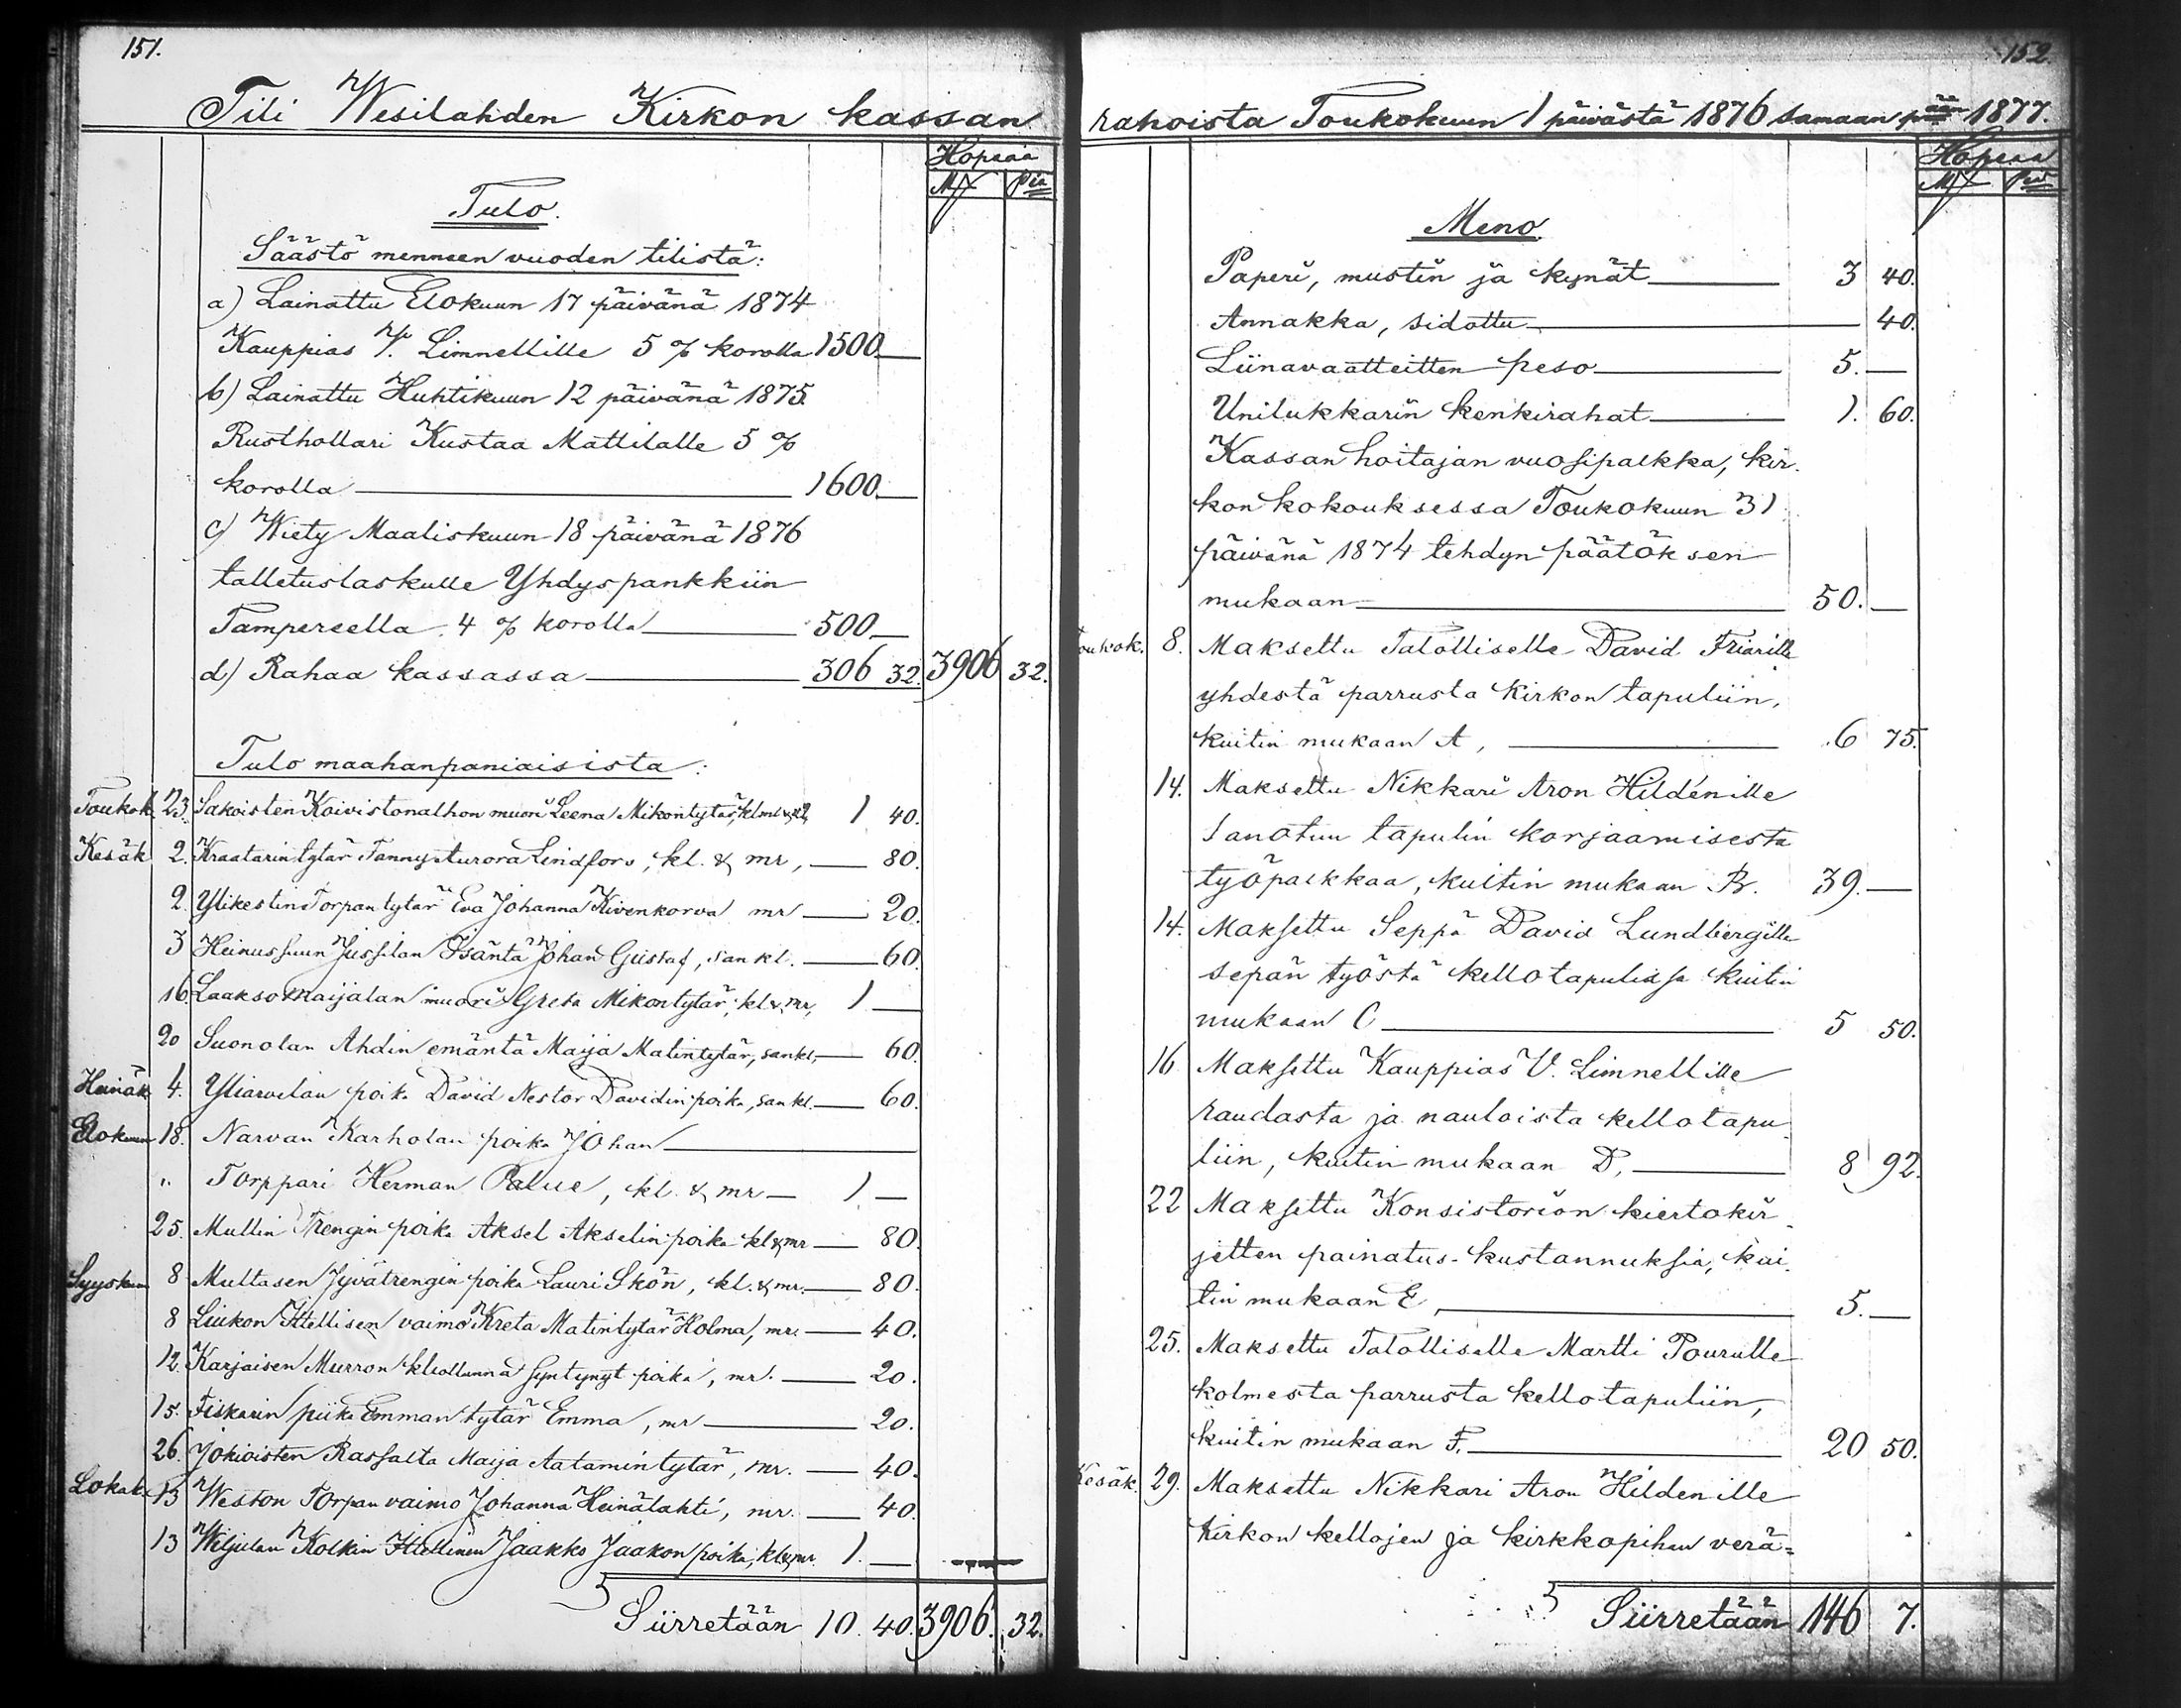 151.
Tili Wesilahden Kirkon kassan
Hopeaa
Mf piä
Tulo.
Säästö mennen vuoden tilistä:
a) Lainattu Elokuun 17 päivänä 1874
Kauppias V. Limnellille 5 % korolla 1500 —
b) Lainattu Huhtikuun 12 päivänä 1875
Rusthollari Kustaa Mattilalle 5 %
korolla — 1600 —
c) Wiety Maaliskuun 18 päivänä 1876
talletuslaskulle Yhdyspankkiin
Tampereella 4 % korolla — 500 —
d) Rahaa kassassa — 306 32. 3906 32.
Tulo maahanpaniaisista:
Toukok. 23. Sakoisten Koivistonalhon muori Leena Mikontytär, 1 40.
Kesäk 2. Kraatarin tytär Fanny Aurora Lindfors, kl. & mr, — 80.
2. Ylikestin Torpan tytär Eva Johanna Kivenkorva mr — 20.
3 Heinussuun Jussilan Isäntä Johan Gustaf, san kl. — 60.
16 Laakso Maijalan muori Greta Mikontytär, kl & mr, 1 —
20 Suonolan Ahdin emäntä Maija Matintytär, sankl, — 60.
Heinäk 4. Yliarvelan poika David Nestor Davidin poika, sankl. — 60.
Elokuun 18. Narvan Karholan poika Johan —
" Torppari Herman Palue, kl. & mr — 1 —
25. Mullin Trengin poika Aksel Akselin poika kl & mr — 80.
Syyskuun 8 Multasen Jyvätrengin poika Lauri Skön, kl. & mr. — 80.
8 Liukon Ittellisen vaimo Kreta Matintytär Holma, mr. — 40.
12. Karjaisen Murron kuollunna syntynyt poika, mr. — 20.
15. Fiskarin piika Emman tytär Emma, mr — 20.
26. Jokioisten Rassalta Maija Aatamintytär, mr. — 40.
Lokak. 13 Weston Torpan vaimo Johanna Heinälahti, mr. — 40.
13 Wiljulan Kolkin Ittellinen Jaakko Jaakon poika, kl & mr. 1. —
Siirretään 10. 40. 3906. 32.
152.
rahoista Toukokuun 1 päivästä 1876 samaan pään 1877.
Hopeaa
Mf piä
Meno.
Paperi, mustin ja kynät — 3 40.
Annakka, sidottu — 40.
Liinavaatteitten peso — 5. —
Unilukkarin kenkirahat — 1. 60.
Kassan hoitajan vuosipalkka, kir-
kon kokouksessa Toukokuun 31
päivänä 1874 tehdyn päätöksen
mukaan — 50. —
Toukok. 8. Maksettu Talolliselle David Friarille
yhdestä parrusta Kirkon tapuliin,
kuitin mukaan A, — 6 75.
14. Maksettu Nikkari Aron Hildénille
sanotun tapulin korjaamisesta
työpalkkaa, kuitin mukaan B. 39. —
14. Maksettu Seppä David Lundbergille
sepän työstä kellotapulissa kuitin
mukaan C — 5 50.
16 Maksettu Kauppias V. Limnellille
raudasta ja nauloista kellotapu-
liin, kuitin mukaan D, — 8 92.
22 Maksettu Konsistorion kiertokir-
jetten painatus-kustannuksia, kui-
tin mukaan E, — 5. —
25. Maksettu Talolliselle Martti Pourulle
kolmesta parrusta kellotapuliin,
kuitin mukaan F. — 20 50.
Kesäk. 29. Maksettu Nikkari Aron Hildenille
Kirkon kellojen ja kirkkopihan verä-
Siirretään 146 7.